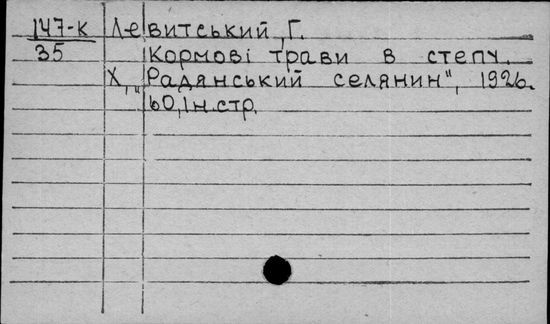 147-К Левитський, Г.
35 Кормові трави в степу.
Х, „Радянський селянин", 1926.
60, Ін.стр.